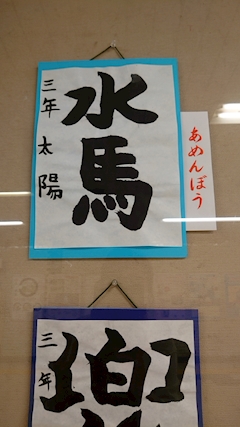 水馬
三年 太陽
あめんぼう
三年